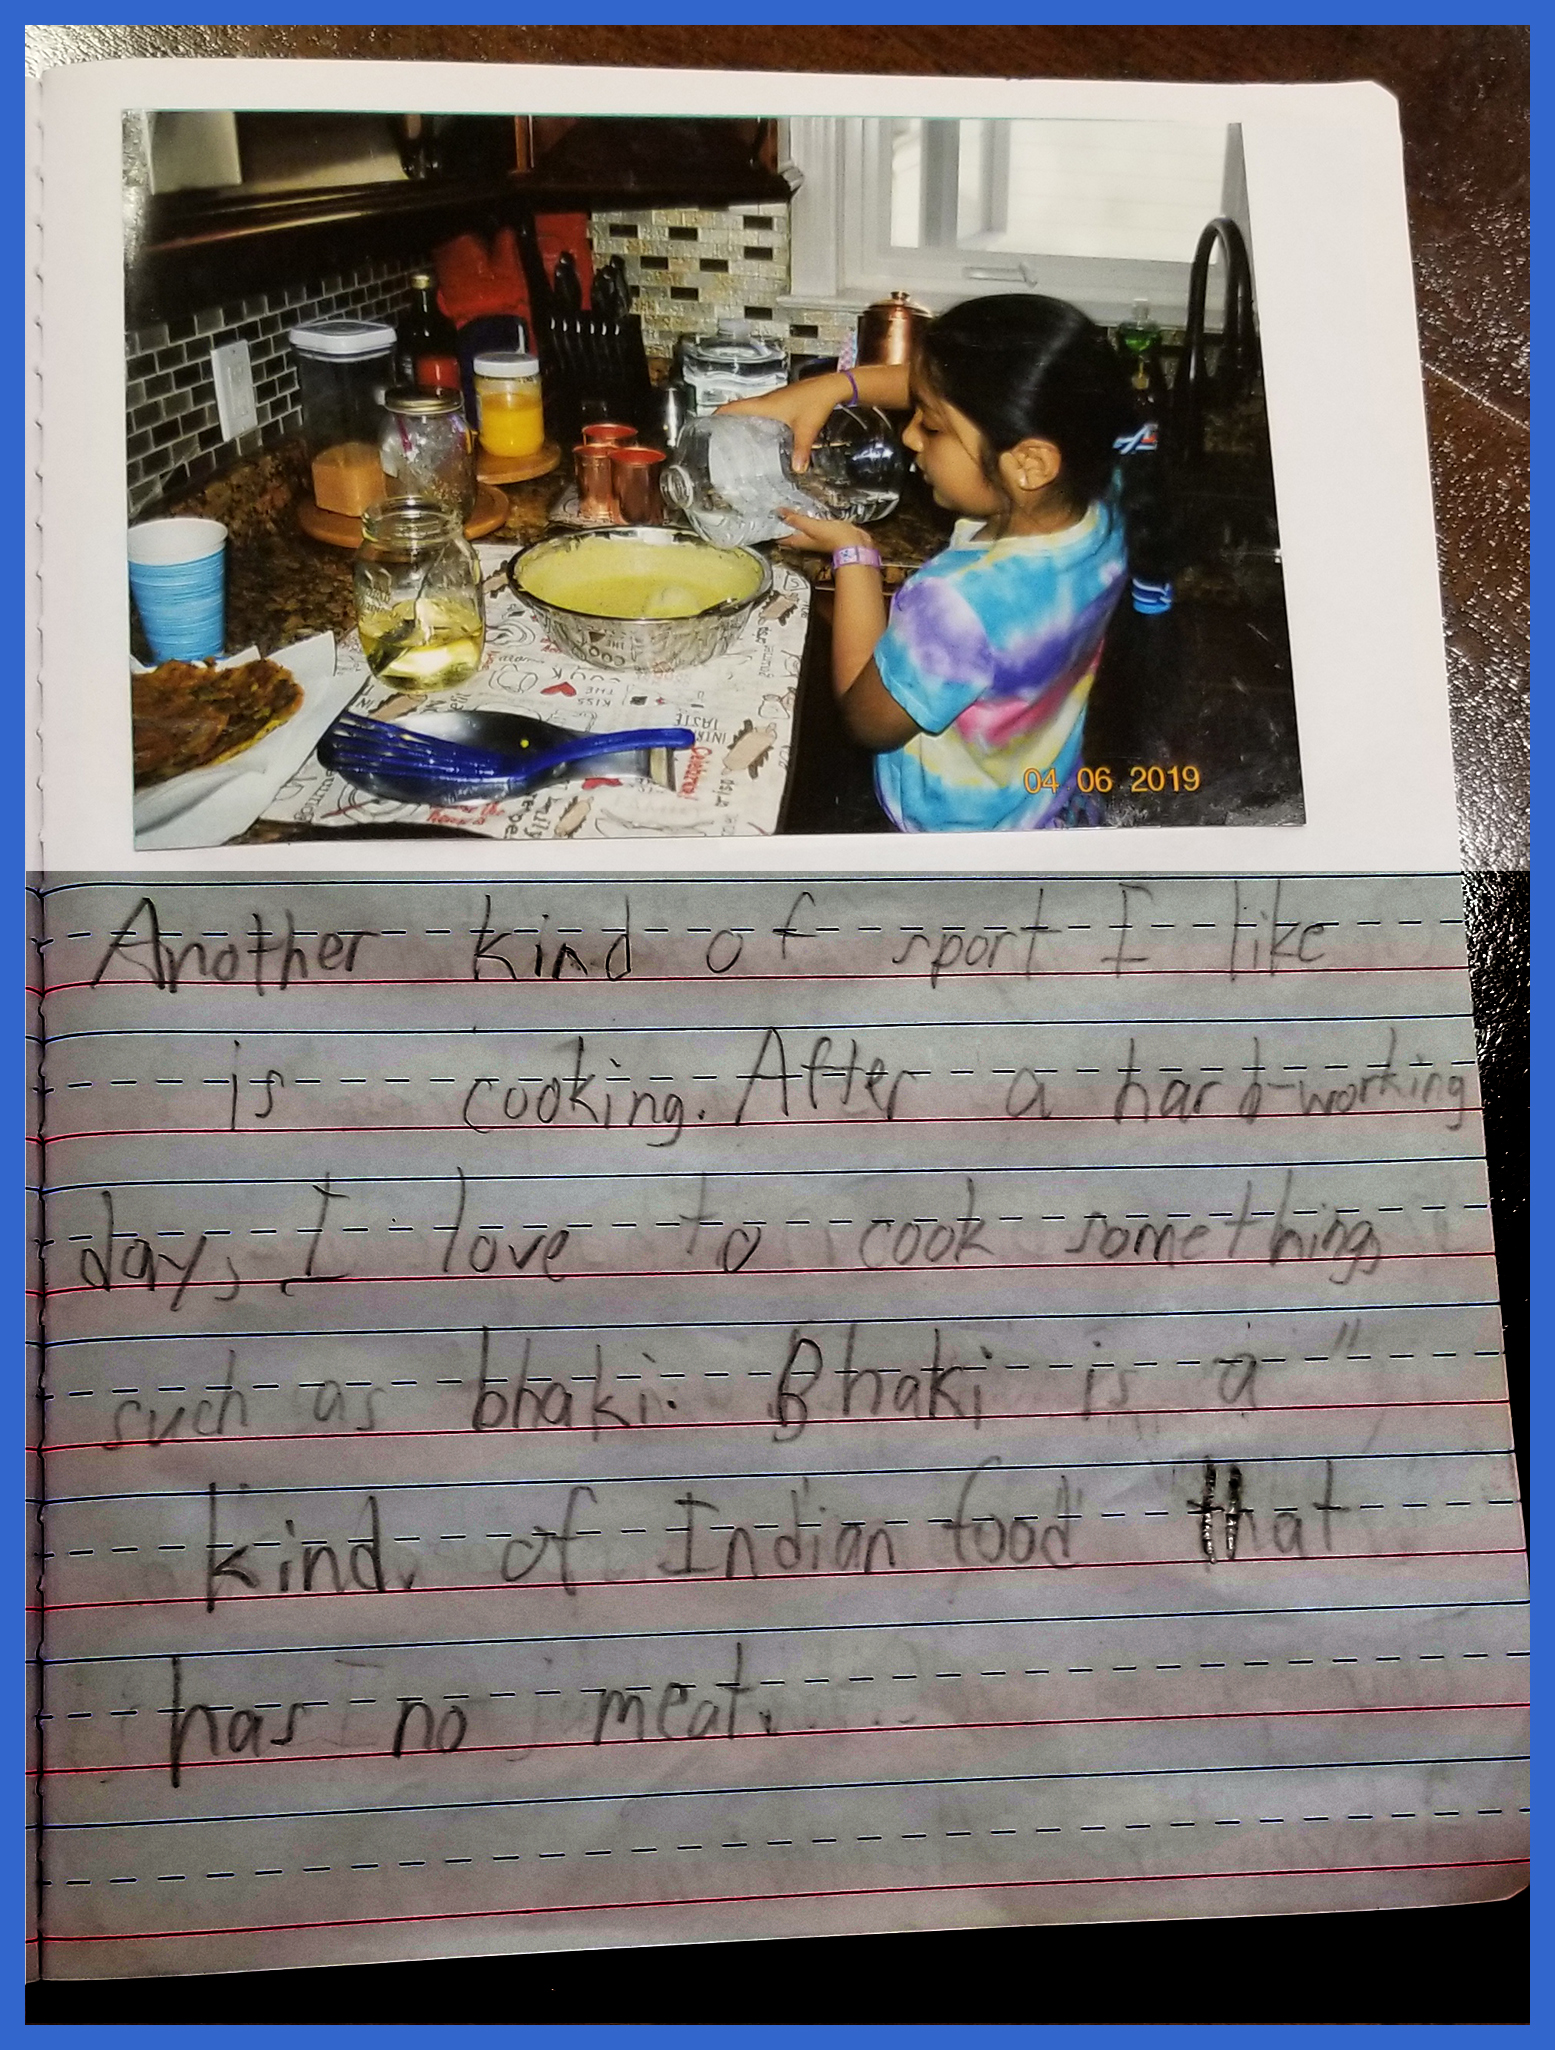 04 06 2019
Another kind of sport I like
is cooking. After a hard-working
day, I love to cook something
such as bhaki. Bhaki is a
kind of Indian food that
has no meat.